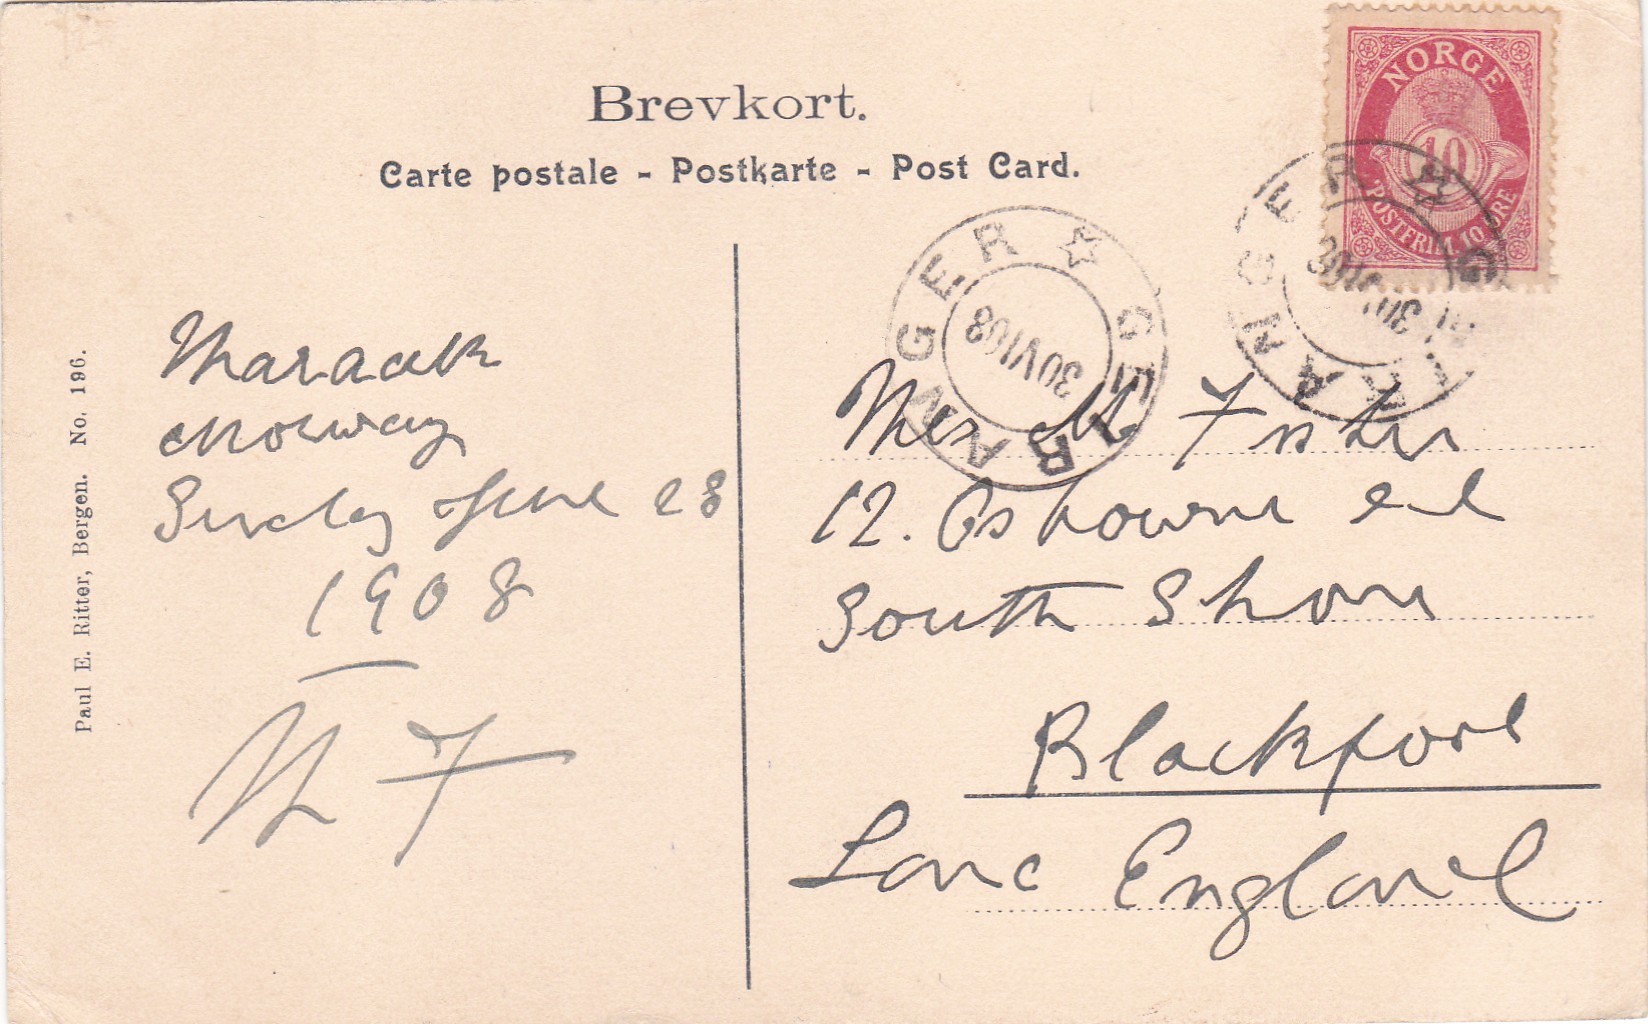 Brevkort.
Carte postale - Postkarte - Post Card.
NORGE
10
POSTFRIM 10 ØRE
GEIRANGER
30 VI 08
GEIRANGER
Paul E. Ritter, Bergen. No. 196.
Maraak
Norway
Sunday June 28
1908
M F
Mrs M Foster
12. Osbourne Rd
South Shore
Blackpool
Lanc England